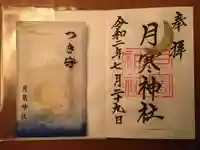 奉拝
月寒神社
令和二年七月二十九日
つき守
月寒神社